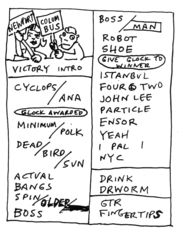 NEWPORT
COLUM
BUS
VICTORY INTRO
CYCLOPS/
ANA
GLOCK AWARDED
MINIMUM/
POLK
DEAD/
BIRD/
SUN
ACTUAL
BANGS
SPIN
OLDER
BOSS
BOSS/
MAN
ROBOT
SHOE
GIVE GLOCK TO
WINNER
ISTANBUL
FOUR OF TWO
JOHN LEE
PARTICLE
ENSOR
YEAH
1 PAL 1
NYC
DRINK
DRWORM
GTR
FINGERTIPS